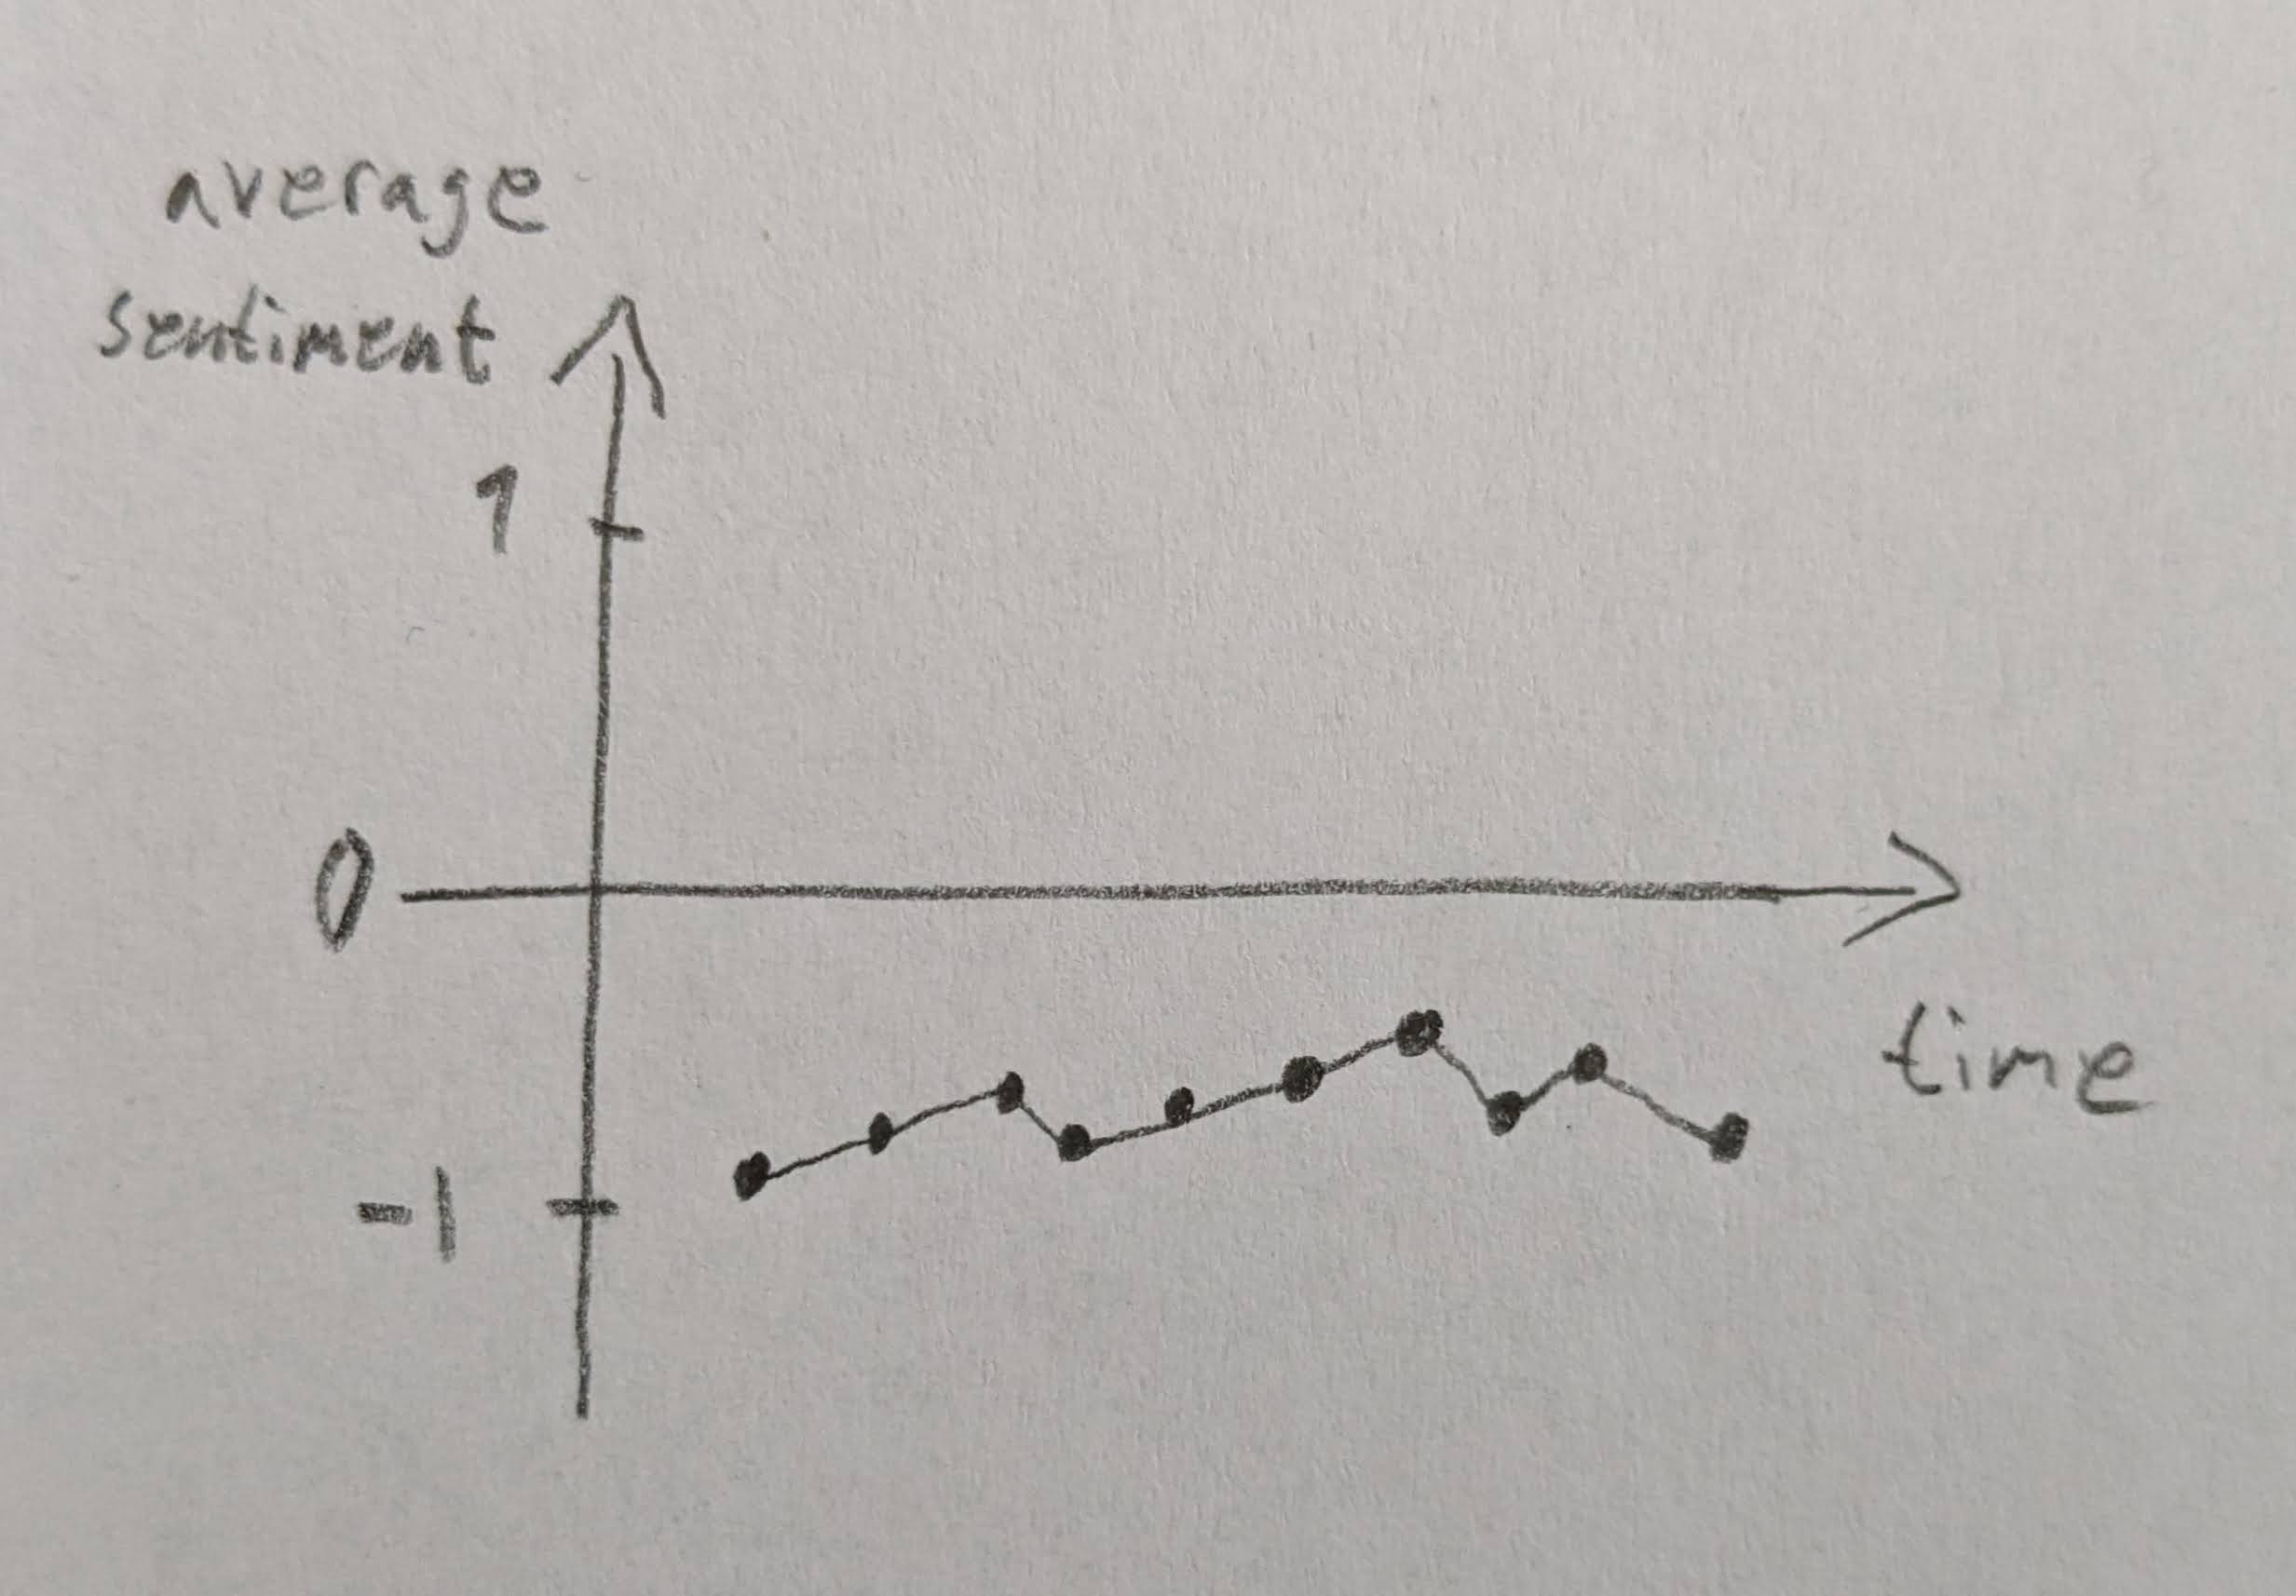 average
sentiment
1
0
time
-1